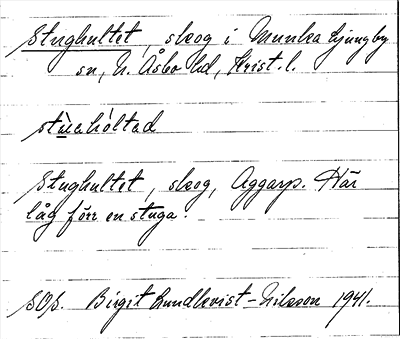 Stughultet, skog i Munka Ljungby
sn, N. Åsbo hd, Krist. l.
Stughultet, skog, Aggarp. Här
låg förr en stuga.
SOS. Birgit Lundkvist-Nilsson 1941.